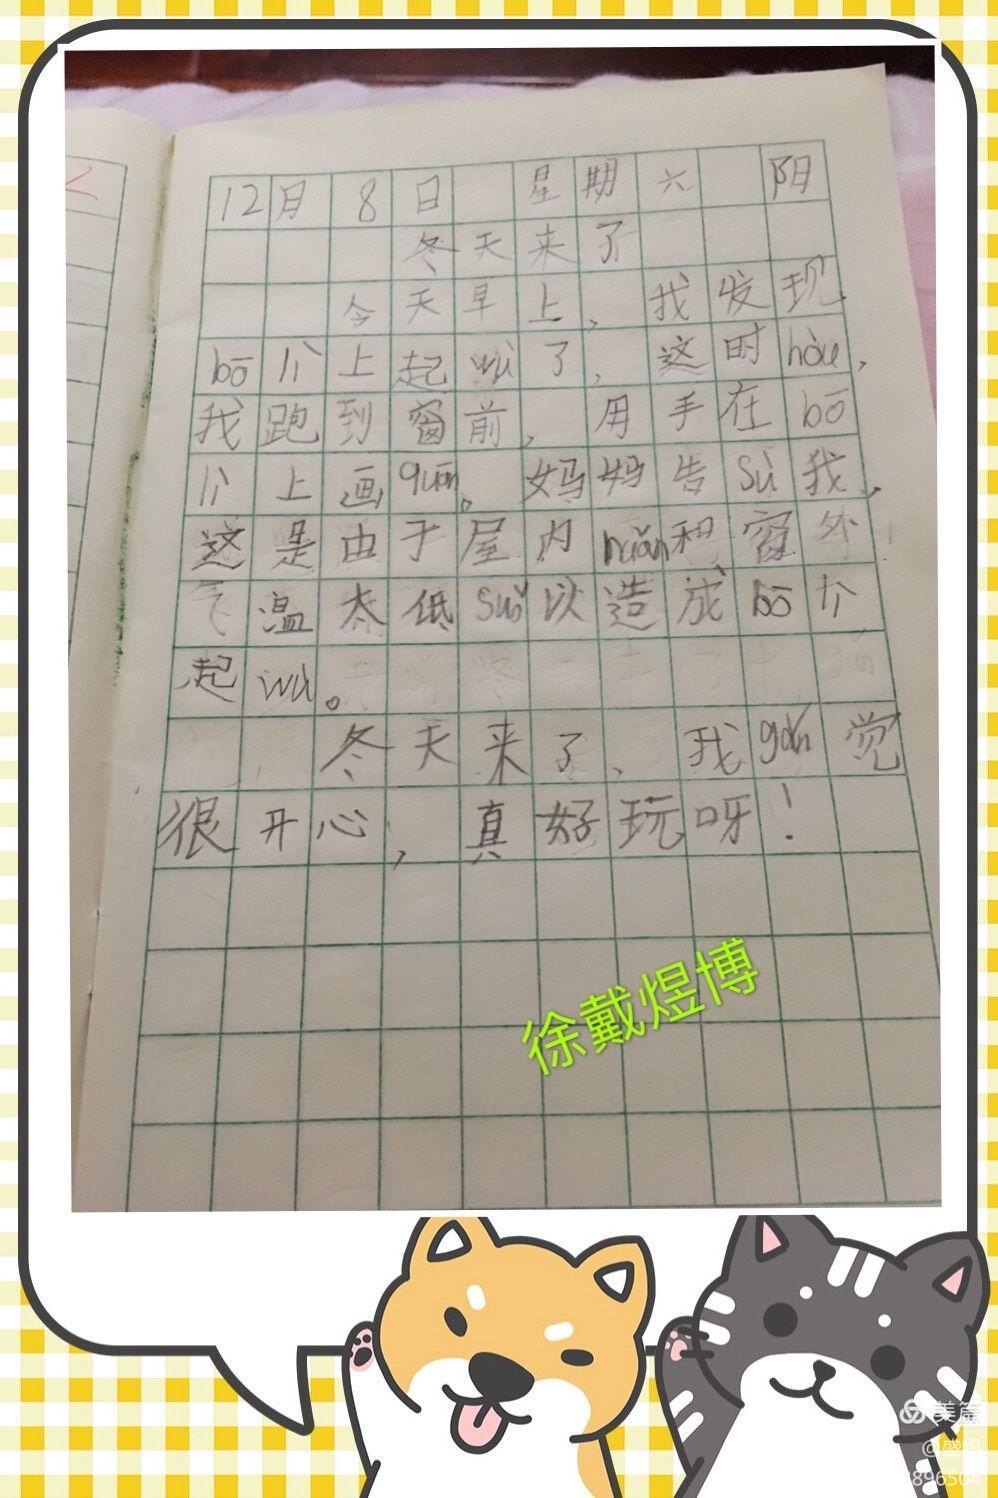 12月 8日 星期六 阴
冬天来了
今天早上，我发现
bō lí上起wù了，这时hòu，
我跑到窗前，用手在bō
lí上画quān。妈妈告sù我，
这是由于屋内nuǎn和，窗外
气温太低suǒ以造成bō lí
起wù。
冬天来了，我gǎn觉
很开心，真好玩呀！
徐戴煜博
美篇
896504